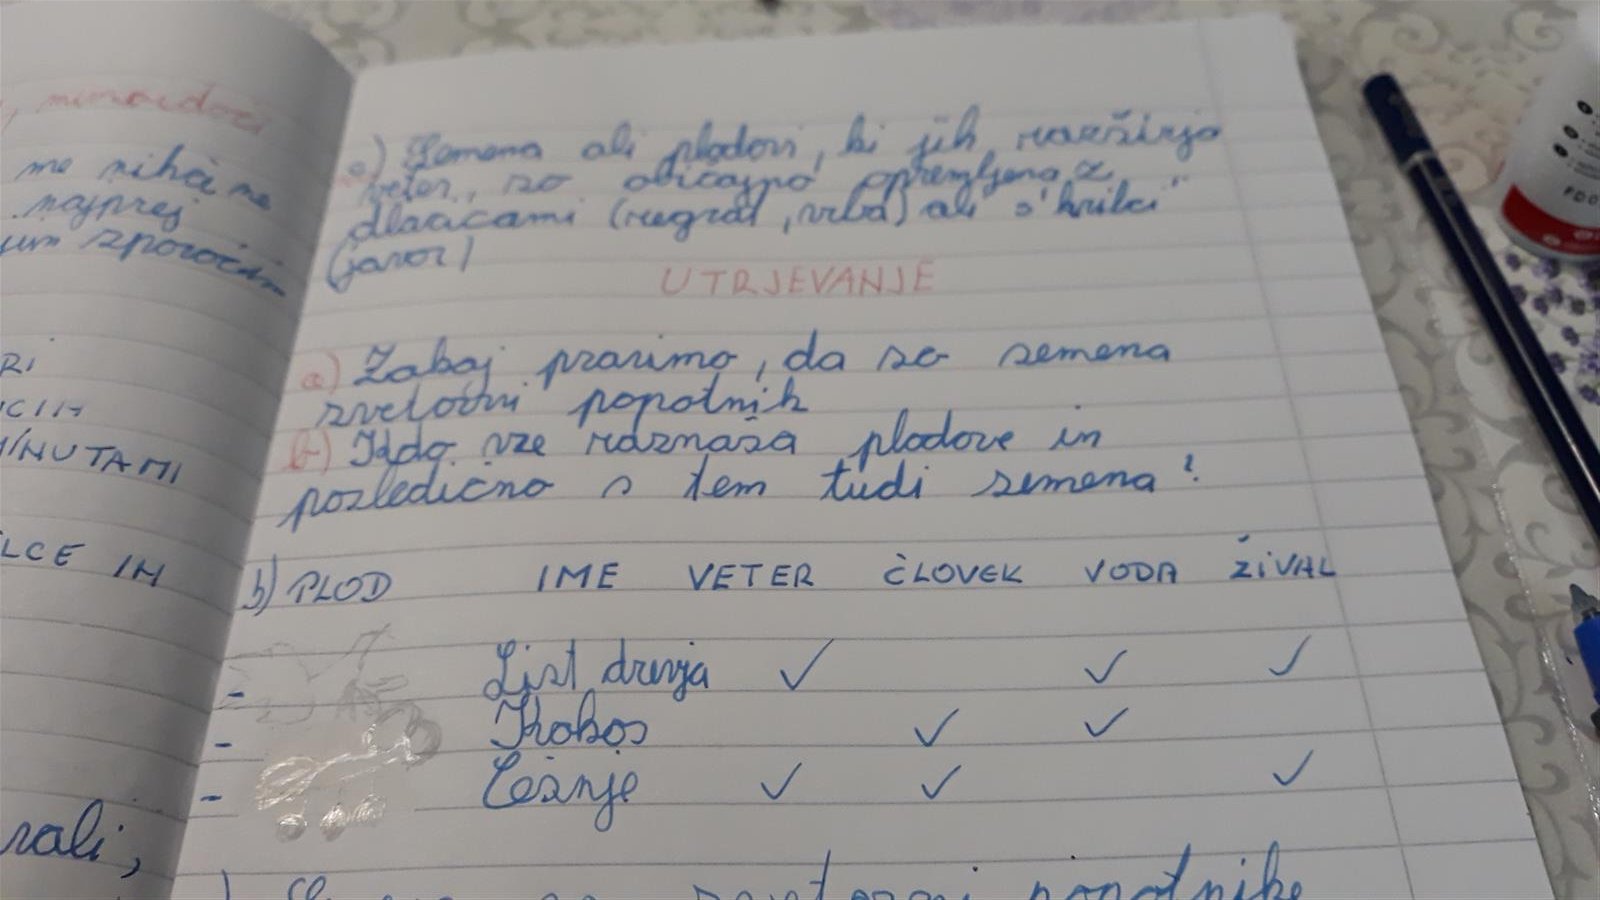 me nihče ne
najprej
RI
MINUTAMI
LCE IN
rali,
e) Semena ali plodovi, ki jih razširja
veter, so običajno opremljena z
dlačicami (regrat, vrba) ali s "krilci"
(javor)
UTRJEVANJE
a) Zakaj pravimo, da so semena
svetovni popotnik
b) Kdo vse raznaša plodove in
posledično s tem tudi semena?
b) PLOD IME VETER ČLOVEK VODA ŽIVAL
- List drevja ✓ ✓ ✓
- Kokos ✓ ✓
- Češnje ✓ ✓ ✓